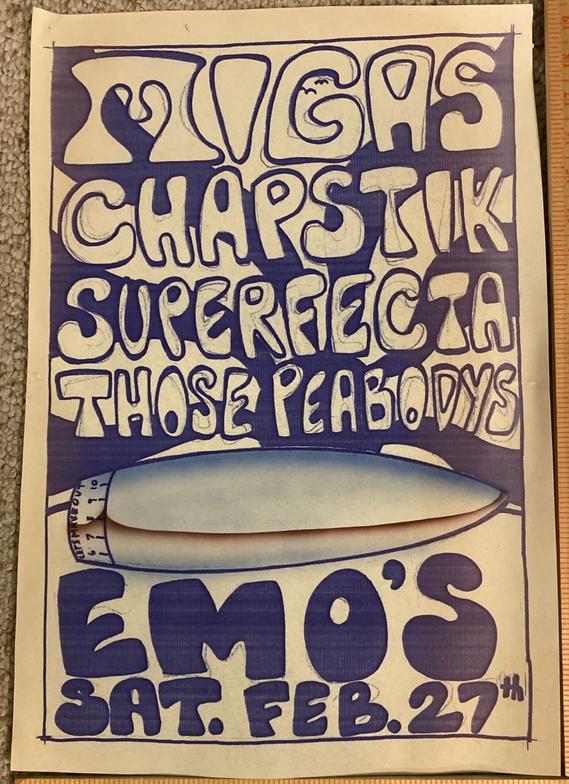 MIGAS
CHAPSTIK
SUPERFECTA
THOSE PEABODYS
6 7 8 9 10
EMO'S
SAT. FEB. 27th